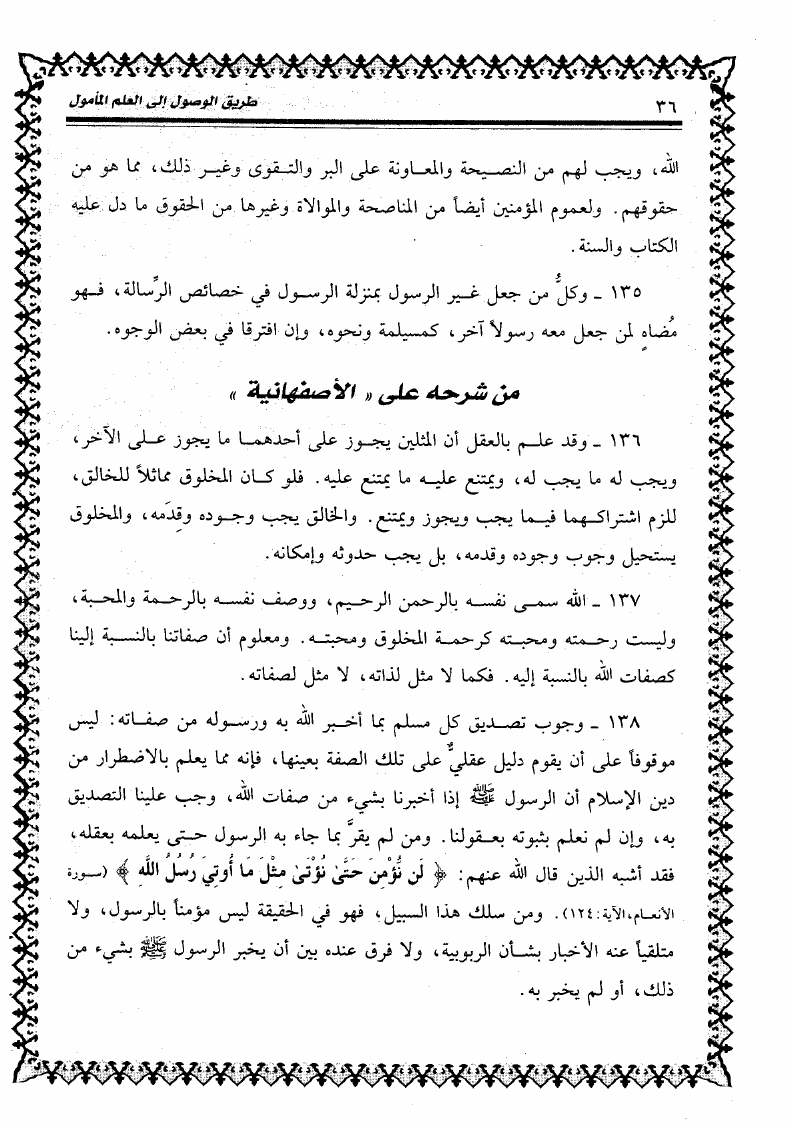 ٣٦
طريق الوصول إلى العلم المأمول
الله، ويجب لهم من النصيحة والمعاونة على البر والتقوى وغير ذلك، مما هو من
حقوقهم. ولعموم المؤمنين أيضاً من المناصحة والموالاة وغيرها من الحقوق ما دل عليه
الكتاب والسنة.
١٣٥ ـ وكلُّ من جعل غير الرسول بمنزلة الرسول في خصائص الرِّسالة، فهو
مُضاهٍ لمن جعل معه رسولاً آخر، كمسيلمة ونحوه، وإن افترقا في بعض الوجوه.
من شرحه على « الأصفهانية »
١٣٦ ـ وقد علم بالعقل أن المثلين يجوز على أحدهما ما يجوز على الآخر،
ويجب له ما يجب له، ويمتنع عليه ما يمتنع عليه. فلو كان المخلوق مماثلاً للخالق،
للزم اشتراكهما فيما يجب ويجوز ويمتنع. والخالق يجب وجوده وقِدَمه، والمخلوق
يستحيل وجوب وجوده وقدمه، بل يجب حدوثه وإمكانه.
١٣٧ ـ الله سمى نفسه بالرحمن الرحيم، ووصف نفسه بالرحمة والمحبة،
وليست رحمته ومحبته كرحمة المخلوق ومحبته. ومعلوم أن صفاتنا بالنسبة إلينا
كصفات الله بالنسبة إليه. فكما لا مثل لذاته، لا مثل لصفاته.
١٣٨ ـ وجوب تصديق كل مسلم بما أخبر الله به ورسوله من صفاته: ليس
موقوفاً على أن يقوم دليل عقليٌّ على تلك الصفة بعينها، فإنه مما يعلم بالاضطرار من
دين الإسلام أن الرسول ﷺ إذا أخبرنا بشيء من صفات الله، وجب علينا التصديق
به، وإن لم نعلم بثبوته بعقولنا. ومن لم يقرَّ بما جاء به الرسول حتى يعلمه بعقله،
فقد أشبه الذين قال الله عنهم: ﴿ لَن نُّؤْمِنَ حَتَّىٰ نُؤْتَىٰ مِثْلَ مَا أُوتِيَ رُسُلُ اللَّهِ ﴾ (سورة
الأنعام،الآية:١٢٤). ومن سلك هذا السبيل، فهو في الحقيقة ليس مؤمناً بالرسول، ولا
متلقياً عنه الأخبار بشأن الربوبية، ولا فرق عنده بين أن يخبر الرسول ﷺ بشيء من
ذلك، أو لم يخبر به.